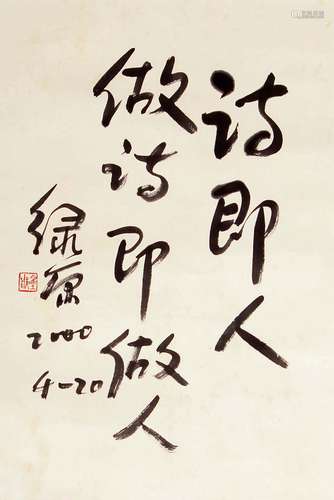 诗即人
做诗即做人
绿原
2000
4-20